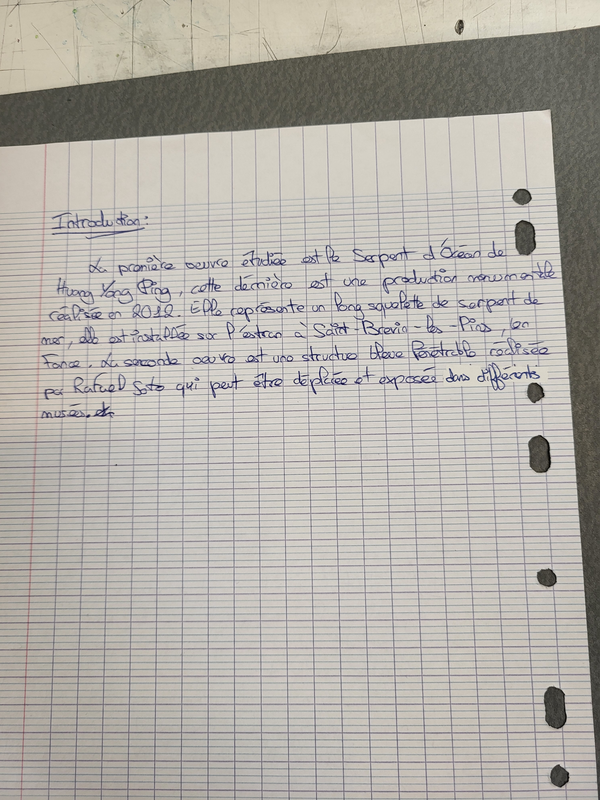 Introduction:
La première oeuvre étudiée est le Serpent d'Océan de
Huang Yong Ping, cette dernière est une production monumentale
réalisée en 2012. Elle représente un long squelette de serpent de
mer, elle est installée sur l'estran à Saint-Brevin-les-Pins, en
France. La seconde oeuvre est une structure bleue Pénétrable réalisée
par Rafael Soto qui peut être déplacée et exposée dans différents
musées.